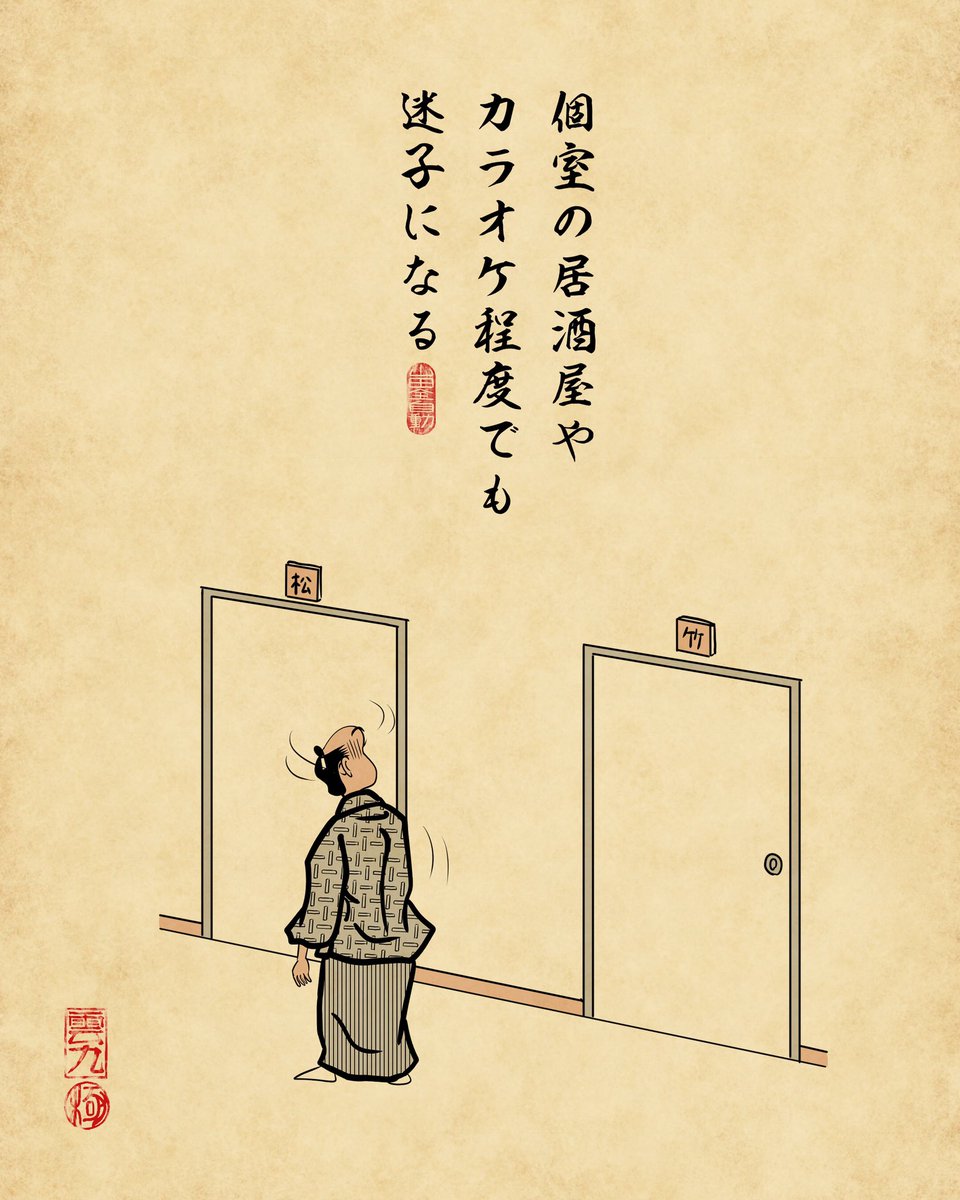 個室の居酒屋や
カラオケ程度でも
迷子になる
松
竹
雲九
極